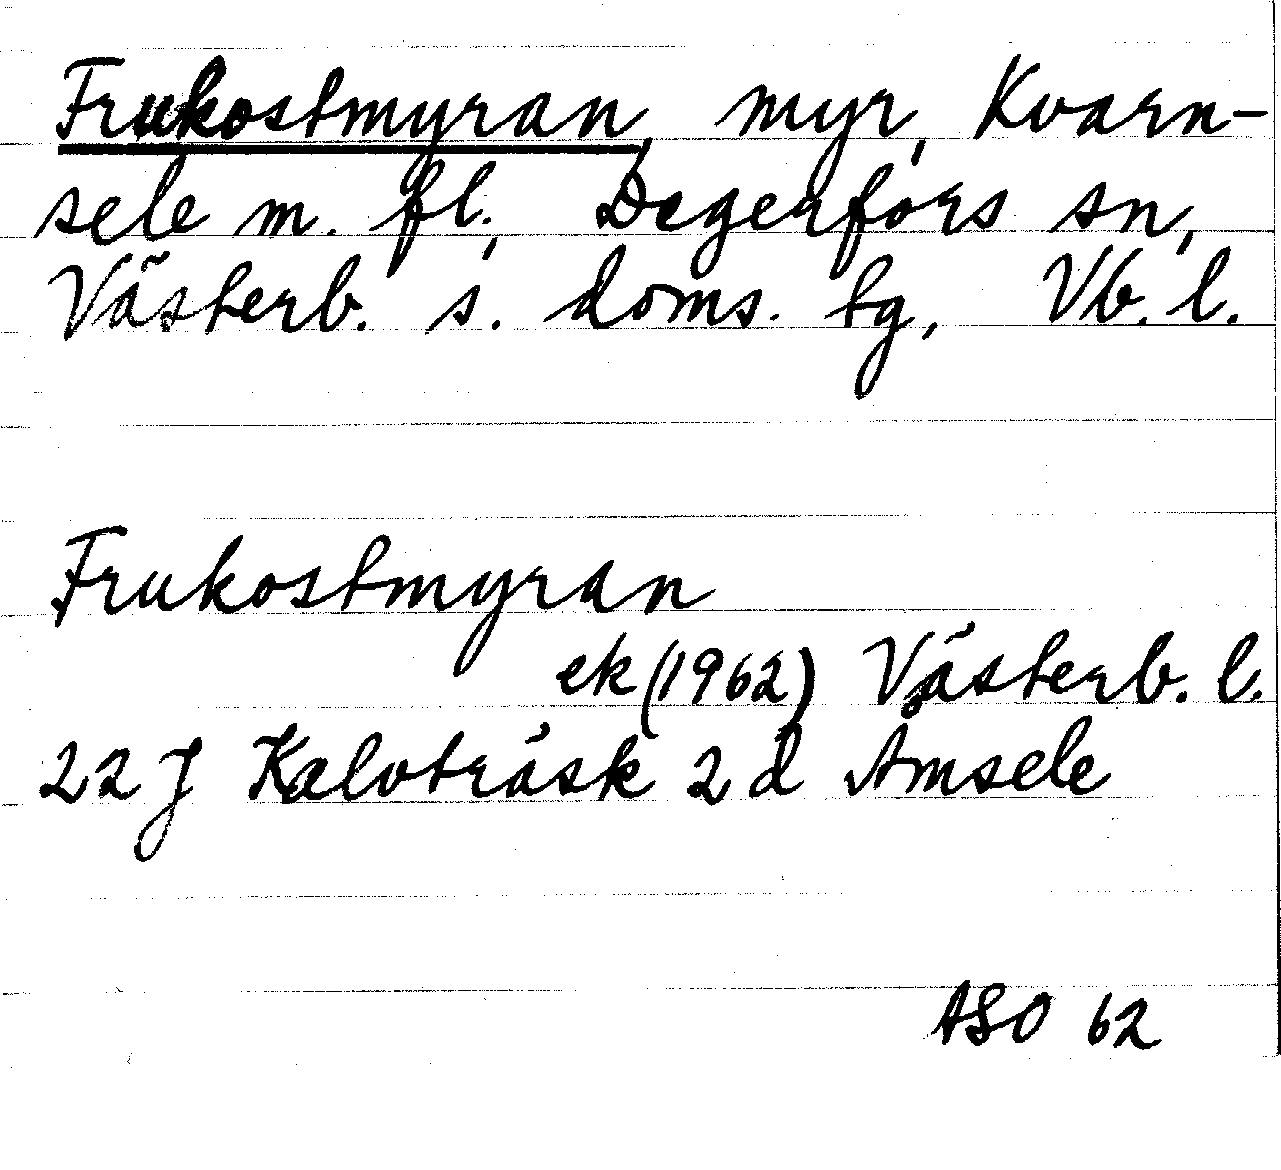 Frukostmyran, myr, Kvarn-
sele m. fl., Degerfors sn,
Västerb. s. doms. tg, Vb. l.
Frukostmyran
ek (1962) Västerb. l.
22 J Kalvträsk 2 d Åmsele
ASO 62